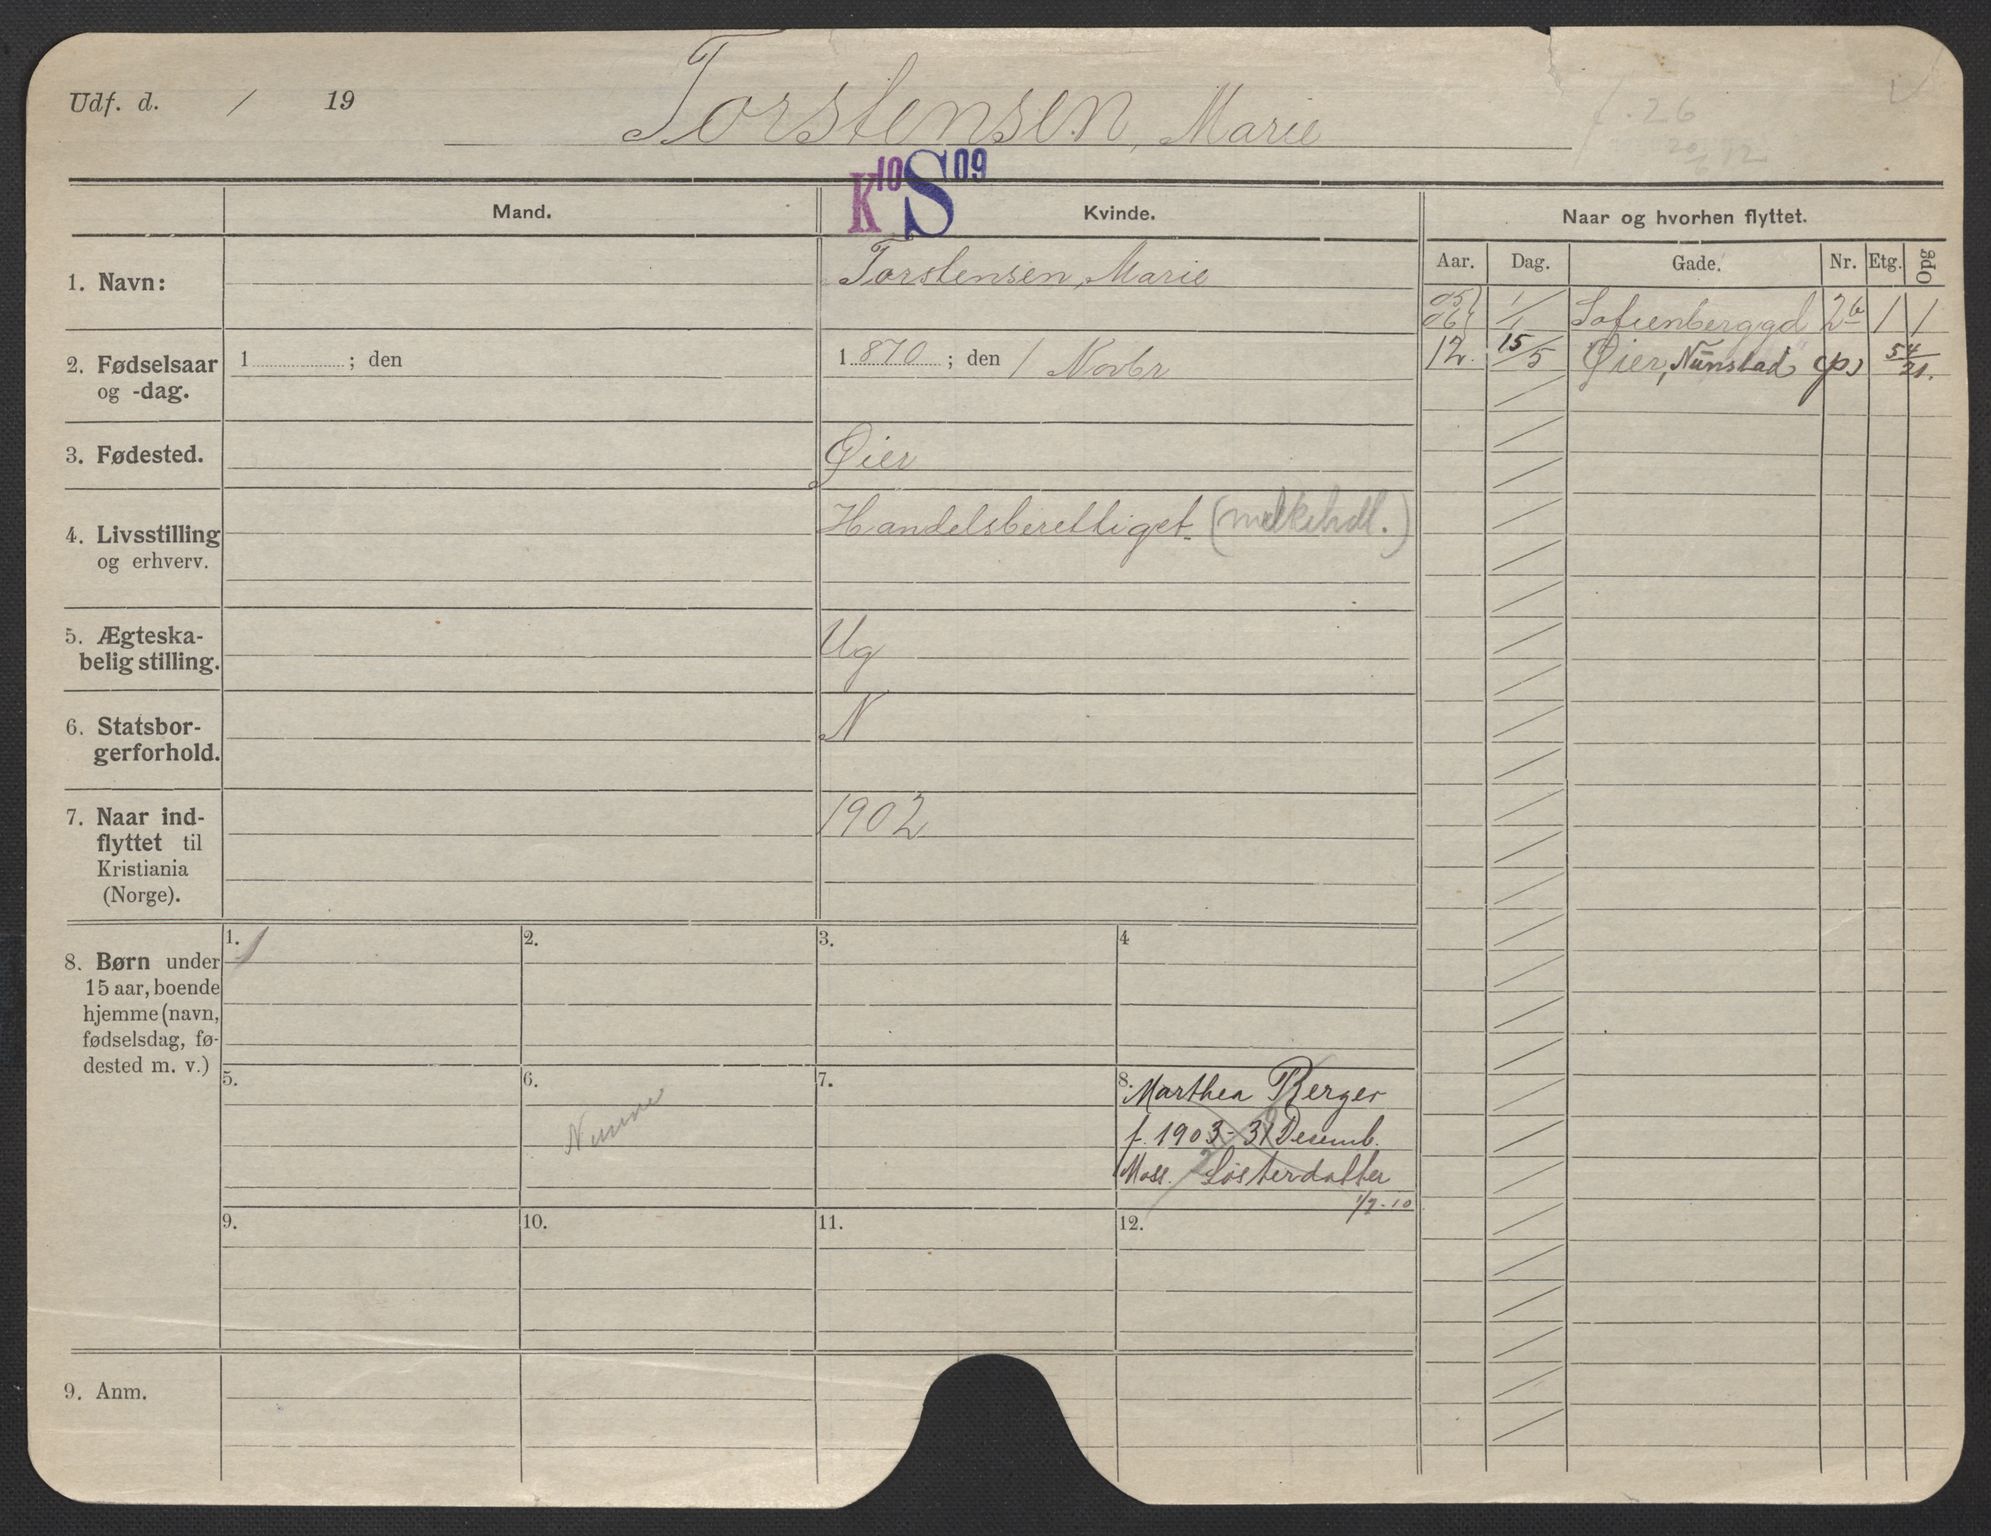 Udf. d. / 19
Torstensen, Marie
f. 26
20/6 12
K10 S09
Mand.
Kvinde.
Naar og hvorhen flyttet.
Aar. Dag. Gade. Nr. Etg. Opg
1. Navn:
Torstensen, Marie
05 06 1/1 Sofienberggd 2b 1 1
12. 15/5 Øier, Nunstad 54/21.
2. Fødselsaar
og -dag.
1 ; den
1 870 ; den 1 Novbr
3. Fødested.
Øier
4. Livsstilling
og erhverv.
Handelsberettiget (melkehdl.)
5. Ægteska-
belig stilling.
Ug
6. Statsbor-
gerforhold.
N
7. Naar ind-
flyttet til
Kristiania
(Norge).
1902
8. Børn under
15 aar, boende
hjemme (navn,
fødselsdag, fø-
dested m. v.)
1. 2. 3. 4
5. 6. 7. 8.
Marthea Berger
f. 1903 - 31 Desemb.
Moss. Søsterdatter
1/7-10
9. 10. 11. 12.
9. Anm.